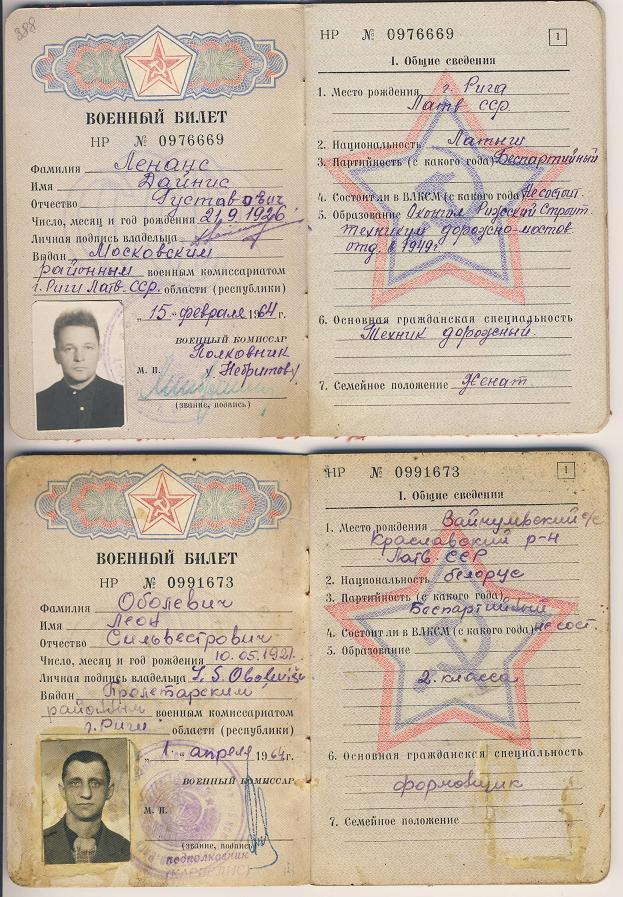 388
ВОЕННЫЙ БИЛЕТ
НР № 0976669
Фамилия Ленанс
Имя Дайнис
Отчество Густавович
Число, месяц и год рождения 21.9.1926
Личная подпись владельца
Выдан Московским
районным военным комиссариатом
г. Риги Латв. ССР. области (республики)
„15" февраля 1964 г.
ВОЕННЫЙ КОМИССАР
Полковник
М. П. /Небритов/
(звание, подпись)
НР № 0976669 1
I. Общие сведения
1. Место рождения г. Рига
Латв ССР
2. Национальность Латыш
3. Партийность (с какого года) Беспартийный
4. Состоял ли в ВЛКСМ (с какого года) Не состоит.
5. Образование Окончил Рижский Строит.
техникум дорожно-мостов
отд в 1949г
6. Основная гражданская специальность
Техник дорожный.
7. Семейное положение Женат
ВОЕННЫЙ БИЛЕТ
НР № 0991673
Фамилия Оболевич
Имя Леон
Отчество Сильвестрович
Число, месяц и год рождения 10.05.1921.
Личная подпись владельца L. S. Obolevičs
Выдан Пролетарским
районным военным комиссариатом
г. Риги области (республики)
„1" апреля 1964 г.
ВОЕННЫЙ КОМИССАР
М. П.
(звание, подпись)
подполковник
(КАРПЕЛИС)
НР № 0991673 1
I. Общие сведения
1. Место рождения с/с
Краславский р-н
Латв ССР
2. Национальность белорус
3. Партийность (с какого года)
Беспартийный
4. Состоит ли в ВЛКСМ (с какого года) не сост.
5. Образование
2 класса
6. Основная гражданская специальность
формовщик
7. Семейное положение